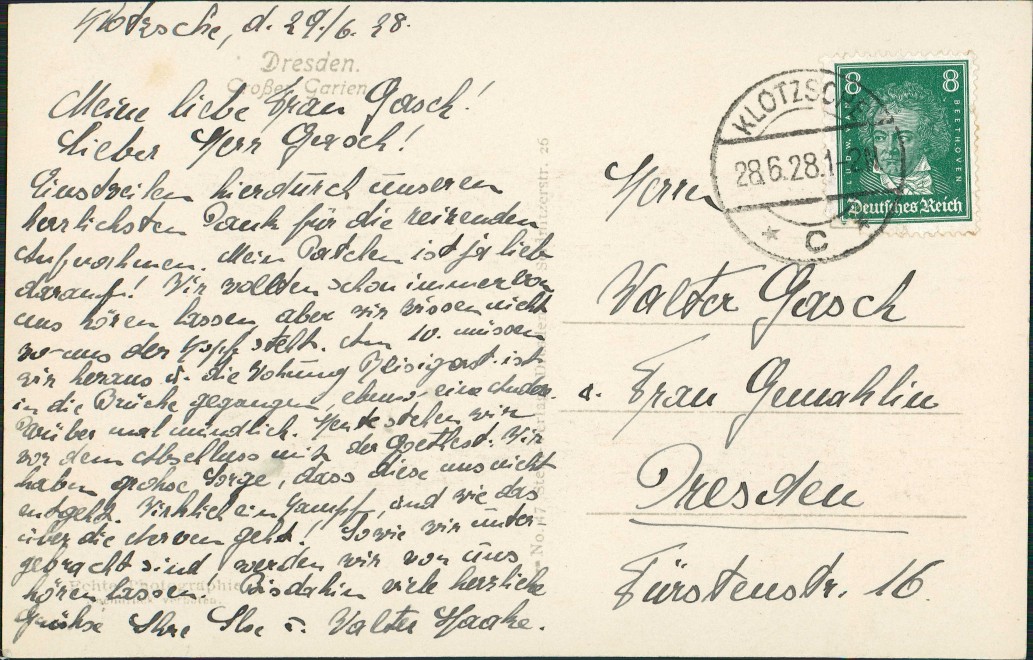 Klotzsche, d. 29./6. 28.
Dresden.
Großer Garten
Meine liebe Frau Gasch!
Lieber Herr Gasch!
Einstweilen hierdurch unseren
herzlichsten Dank für die reizenden
Aufnahmen. Mein Patchen ist ja lieb
darauf! Wir wollten schon immer von
uns hören lassen aber wir wissen nicht
wo uns der Kopf steht. Am 10. müssen
wir heraus u. die Wohnung ist
in die Brüche gegangen, ebenso eine andere.
Darüber mal mündlich. Heute stehen wir
vor dem Abschluss mit der Wir
haben grohse Sorge, dass diese uns nicht
entgeht. Wirklich ein Kampf, und wie das
über die Nerven geht! Sowie wir unter-
gebracht sind werden wir von uns
hören lassen. Bisdahin viele herzliche
Grühse Ihre Ilse u. Walter Haake.
Echte Photographie
Verboten.
No. 26
KLOTZSCHE
28.6.28.1-2N
* C *
8 8
LUDW. V. BEETHOVEN
Deutsches Reich
Herrn
Walter Gasch
u. Frau Gemahlin
Dresden
Fürstenstr. 16.